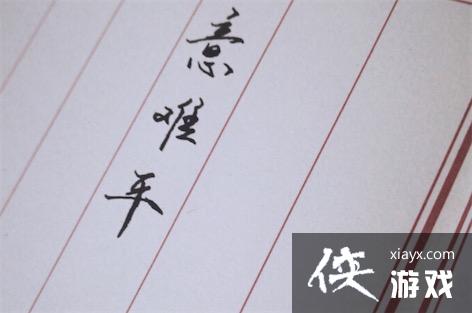 意难平
侠
xiayx.com
游戏